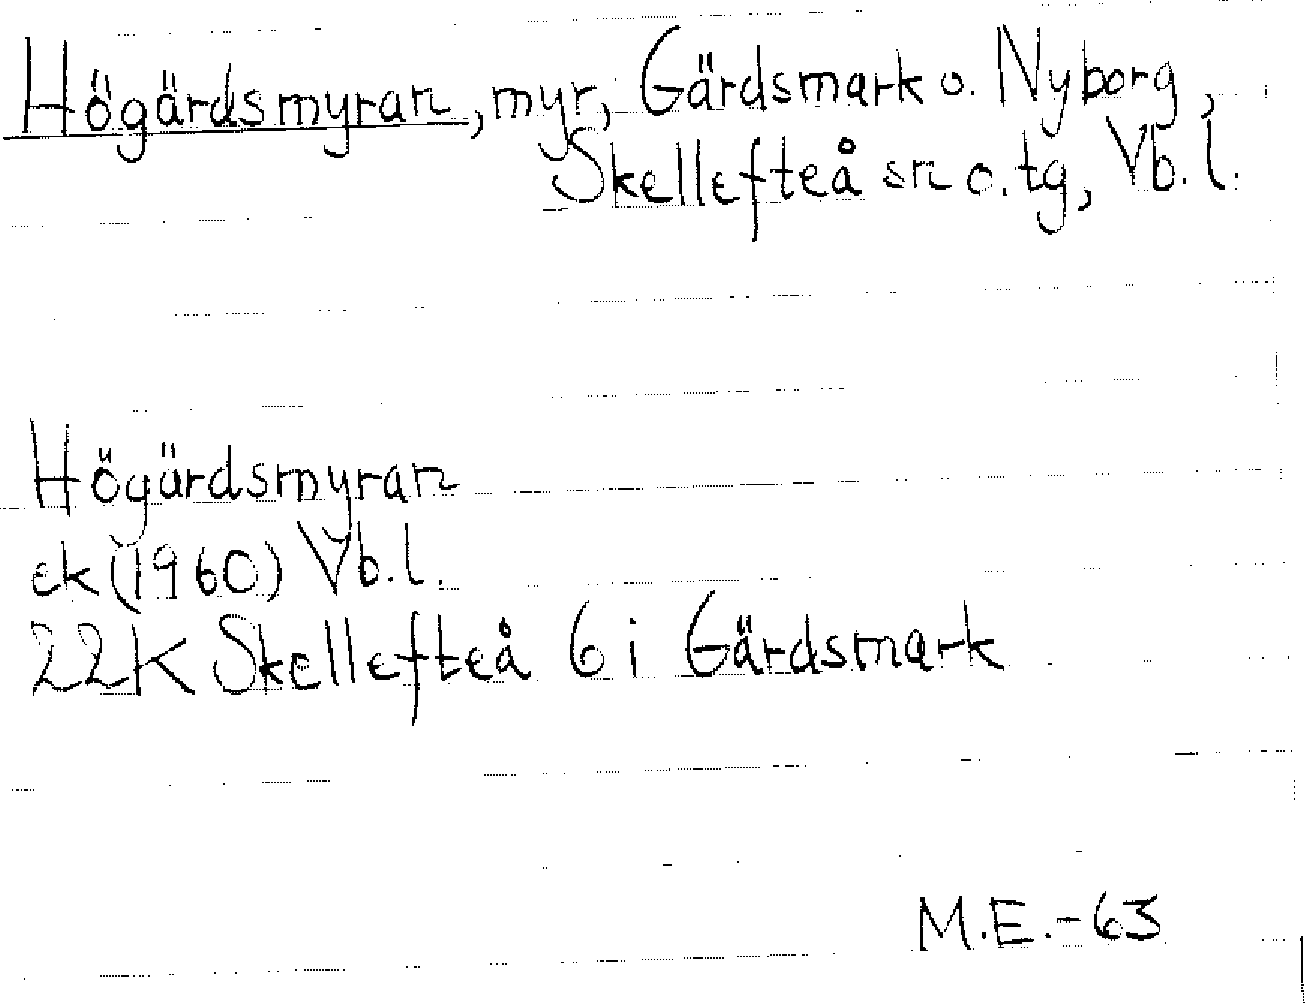 Högärdsmyran, myr, Gärdsmark o. Nyborg,
Skellefteå sn o. tg, Vb. l.
Högärdsmyran
ek (1960) Vb. l.
22K Skellefteå 6 i Gärdsmark
M.E.-63